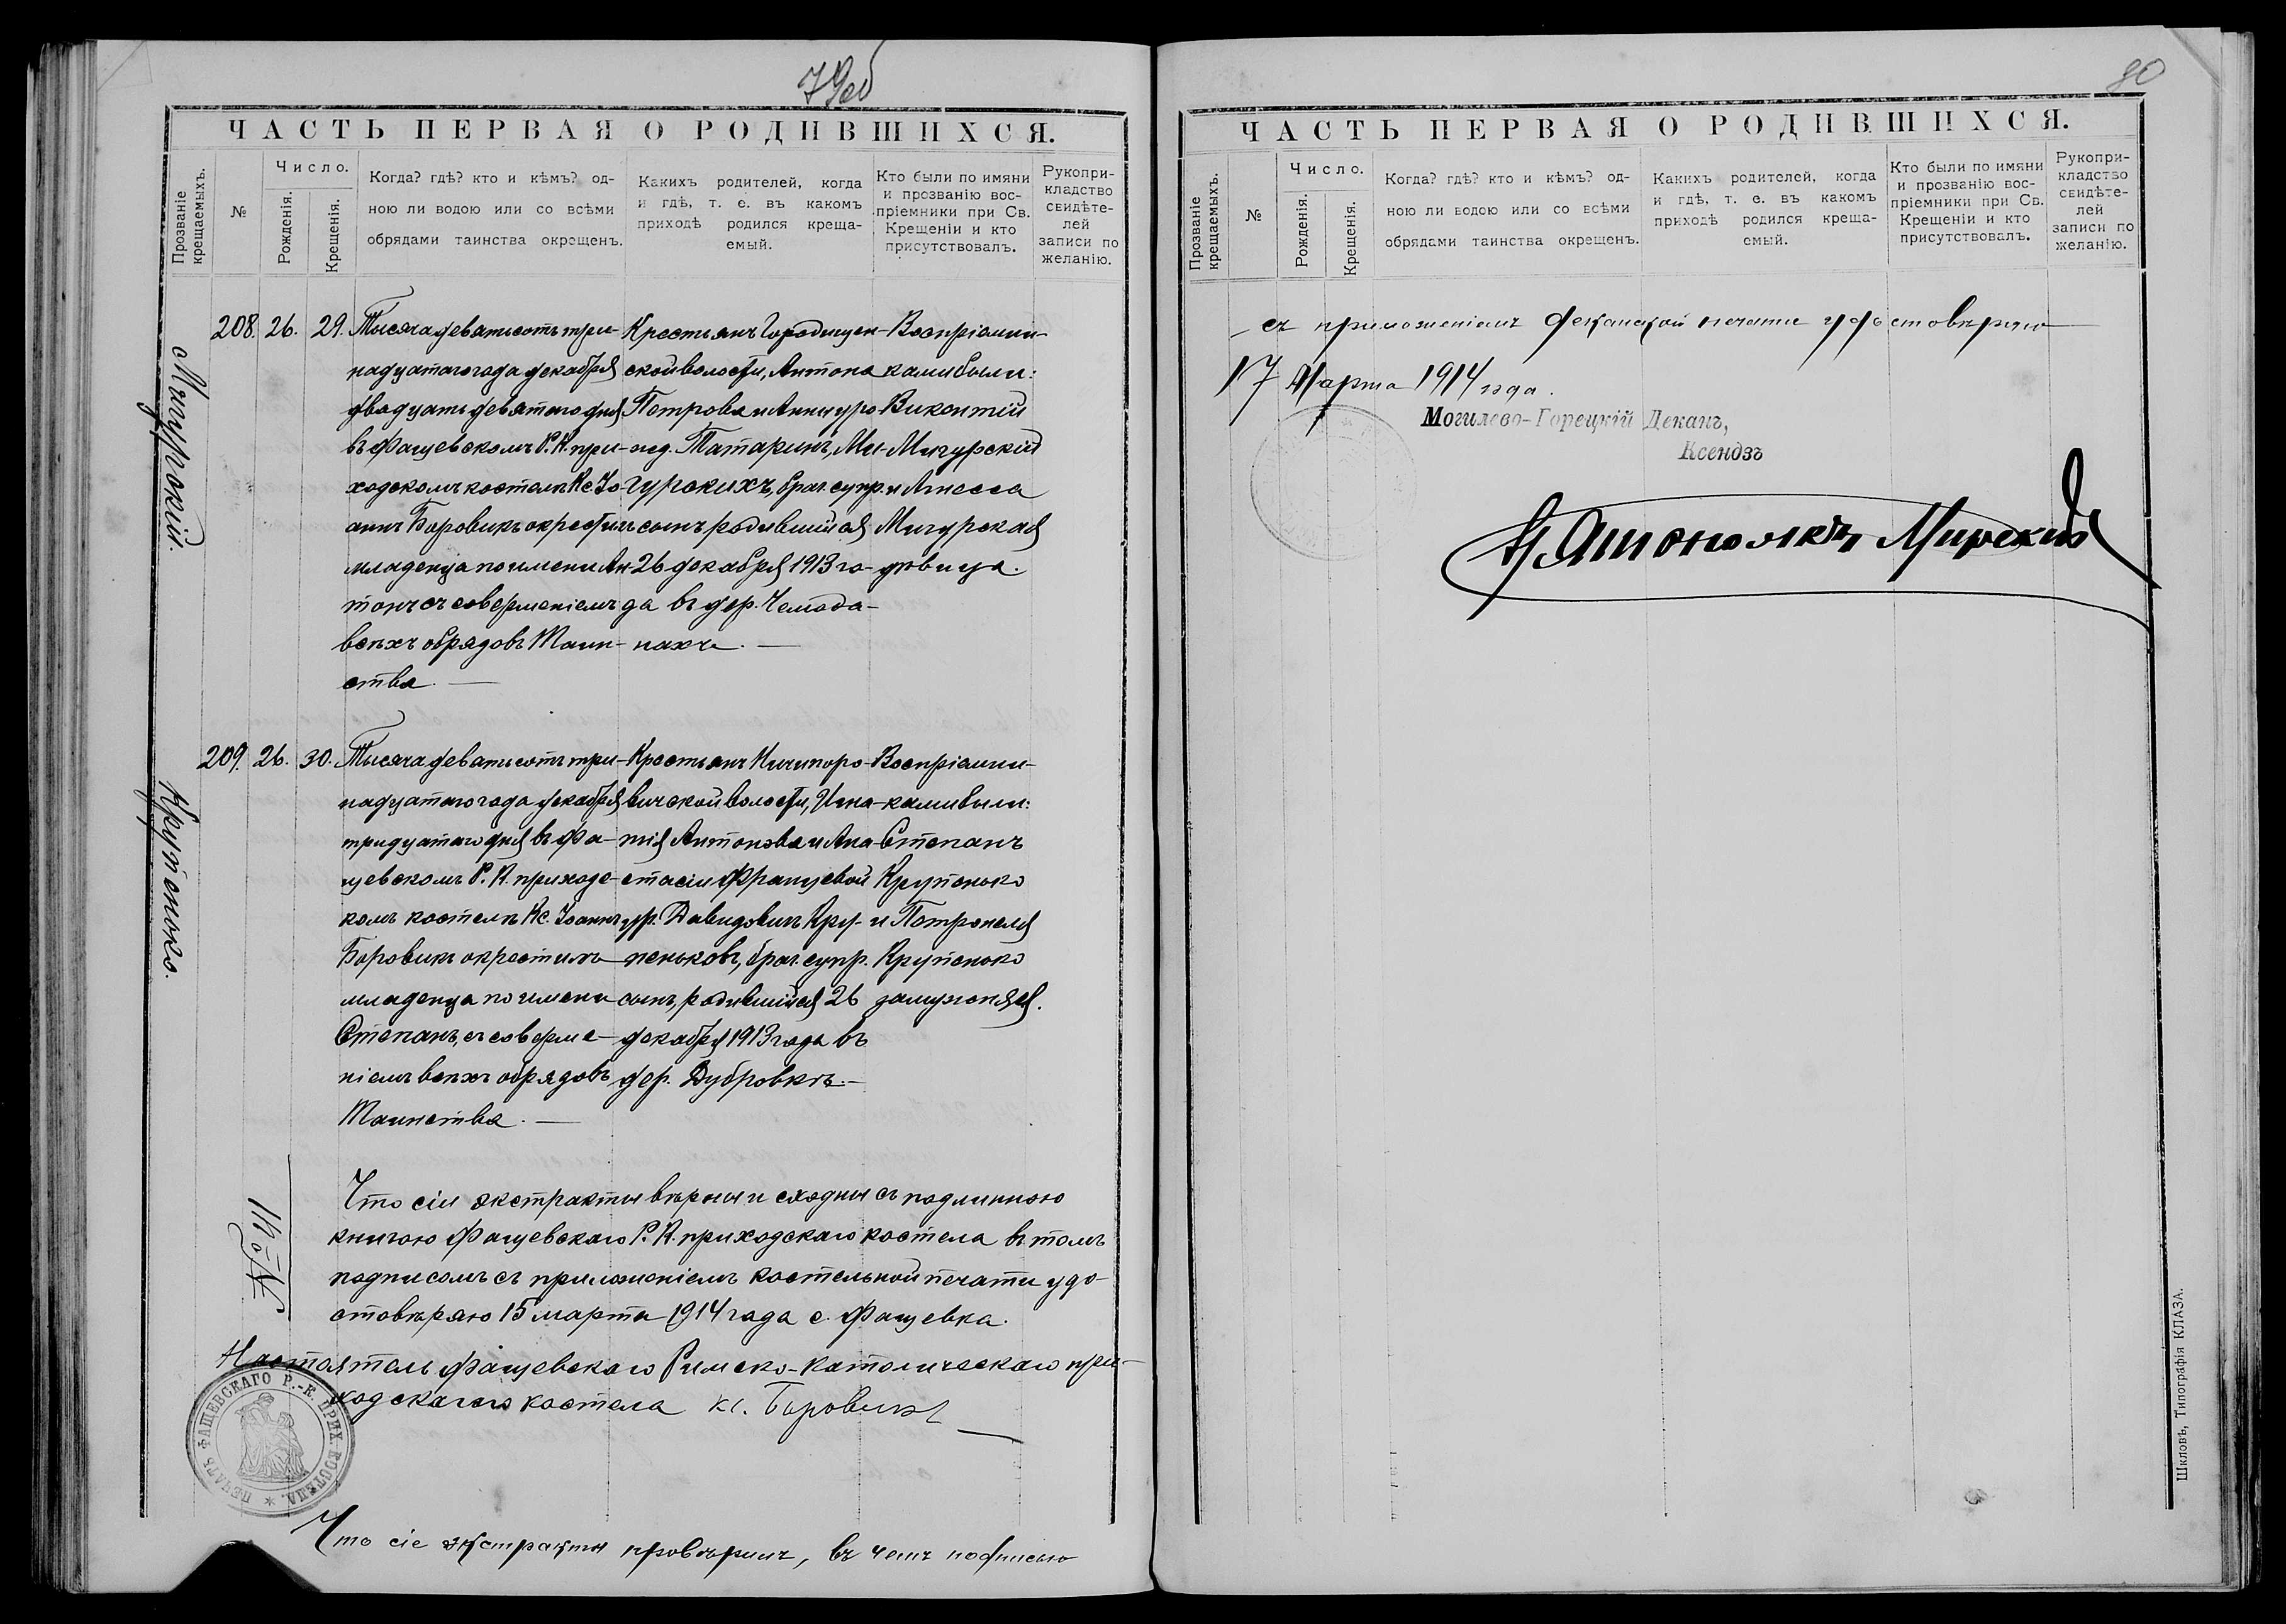 79об
ЧАСТЬ ПЕРВАЯ О РОДИВШИХСЯ.
Прозваніе крещаемыхъ.
№
Число.
Рожденія.
Крещенія.
Когда? гдѣ? кто и кѣмъ? од-
ною ли водою или со всѣми
обрядами таинства окрещенъ.
Какихъ родителей, когда
и гдѣ, т. е. въ какомъ
приходѣ родился креща-
емый.
Кто были по имяни
и прозванію вос-
пріемники при Св.
Крещеніи и кто
присутствовалъ.
Рукопри-
кладство
свидѣте-
лей
записи по
желанію.
Мигурскій.
208. 26. 29.
Тысяча девятьсотъ три-
надцатаго года декабря
двадцать девятаго дня
въ Фащевскомъ Р. К. при-
ходскомъ костелѣ Кс. Іо-
аннъ Боровикъ окрестилъ
младенца по имени Ан-
тонъ съ совершеніемъ
всѣхъ обрядовъ Таин-
ства.
Крестьянъ Городищен-
ской волости, Антона
Петрова и Анны уро-
жд. Татаринъ, Ми-
гурскихъ, брач. супр.
сынъ, родившійся
26 декабря 1913 го-
да въ дер. Чемода-
нахъ.
Воспріемни-
ками были:
Викентій
Мигурскій
и Агнесса
Мигурская
дѣвица.
Крупенько.
209. 26. 30.
Тысяча девятьсотъ три-
надцатаго года декабря
тридцатаго дня въ Фа-
щевскомъ Р. К. приходс-
комъ костелѣ Кс. Іоаннъ
Боровикъ окрестилъ
младенца по имени
Степанъ, съ соверше-
ніемъ всѣхъ обрядовъ
Таинства.
Крестьянъ Ничипоро-
вичской волости, Игна-
тія Антонова и Ана-
стасіи Францевой
ур. Давидовичъ Кру-
пеньковъ, брач. супр.
сынъ, родившійся 26
декабря 1913 года въ
дер. Дубровкѣ.
Воспріемни-
ками были:
Степанъ
Крупенько
и Петронеля
Крупенько
замужняя.
№ 41
Что сіи экстракты вѣрны и сходны съ подлинною
книгою Фащевскаго Р. К. приходскаго костела въ томъ
подписомъ съ приложеніемъ костельной печати удо-
стовѣряю 15 марта 1914 года с. Фащевка.
Настоятель Фащевскаго Римско-католическаго при-
ходскаго костела кс. Боровикъ
ПЕЧАТЬ ФАЩЕВСКАГО Р.-К. ПРИХ. КОСТЕЛА.
Что сіе экстракты провѣрилъ, въ чемъ подписью
80
ЧАСТЬ ПЕРВАЯ О РОДИВШИХСЯ.
Прозваніе крещаемыхъ.
№
Число.
Рожденія.
Крещенія.
Когда? гдѣ? кто и кѣмъ? од-
ною ли водою или со всѣми
обрядами таинства окрещенъ.
Какихъ родителей, когда
и гдѣ, т. е. въ какомъ
приходѣ родился креща-
емый.
Кто были по имяни
и прозванію вос-
пріемники при Св.
Крещеніи и кто
присутствовалъ.
Рукопри-
кладство
свидѣте-
лей
записи по
желанію.
съ приложеніемъ деканской печати удостовѣряю
17 Марта 1914 года.
Могилево-Горецкій Деканъ,
Ксендзъ
Мирскій
Шкловъ, Типографія КЛАЗА.